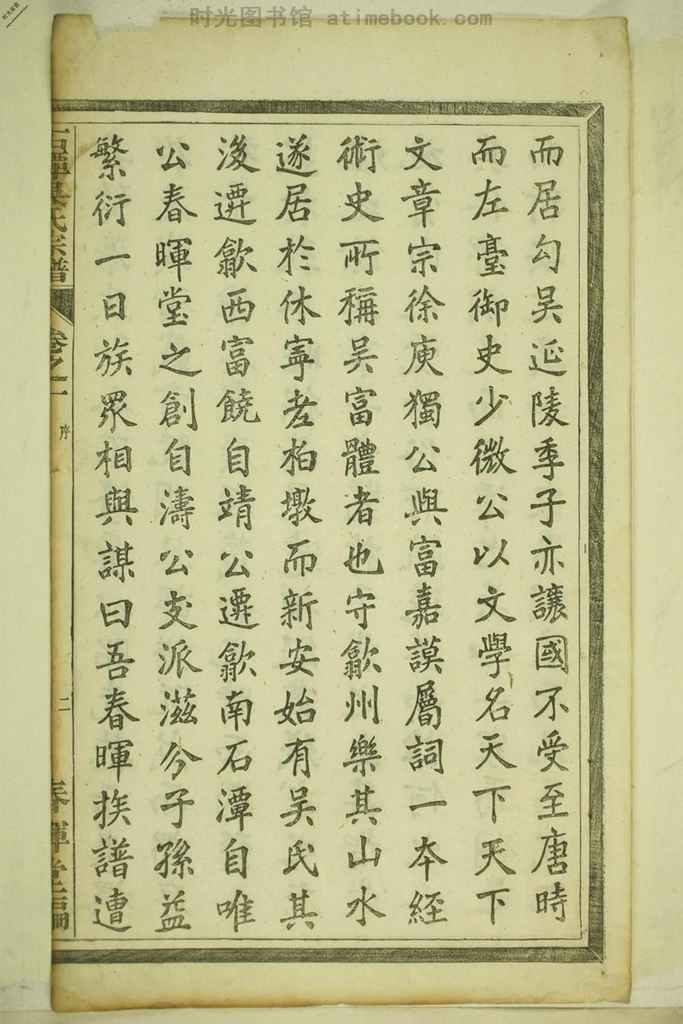 时光图书馆 atimebook.com
而居勾吴延陵季子亦讓國不受至唐時
而左臺御史少微公以文學名天下天下
文章宗徐庾獨公與富嘉謨屬詞一本經
術史所稱吴富體者也守歙州樂其山水
遂居於休寧老柏墩而新安始有吴氏其
後遷歙西富饒自靖公遷歙南石潭自唯
公春暉堂之創自濤公支派滋分子孫益
繁衍一日族眾相與謀曰吾春暉族譜遭
石潭吳氏宗譜 卷之一 序 二 春暉堂編